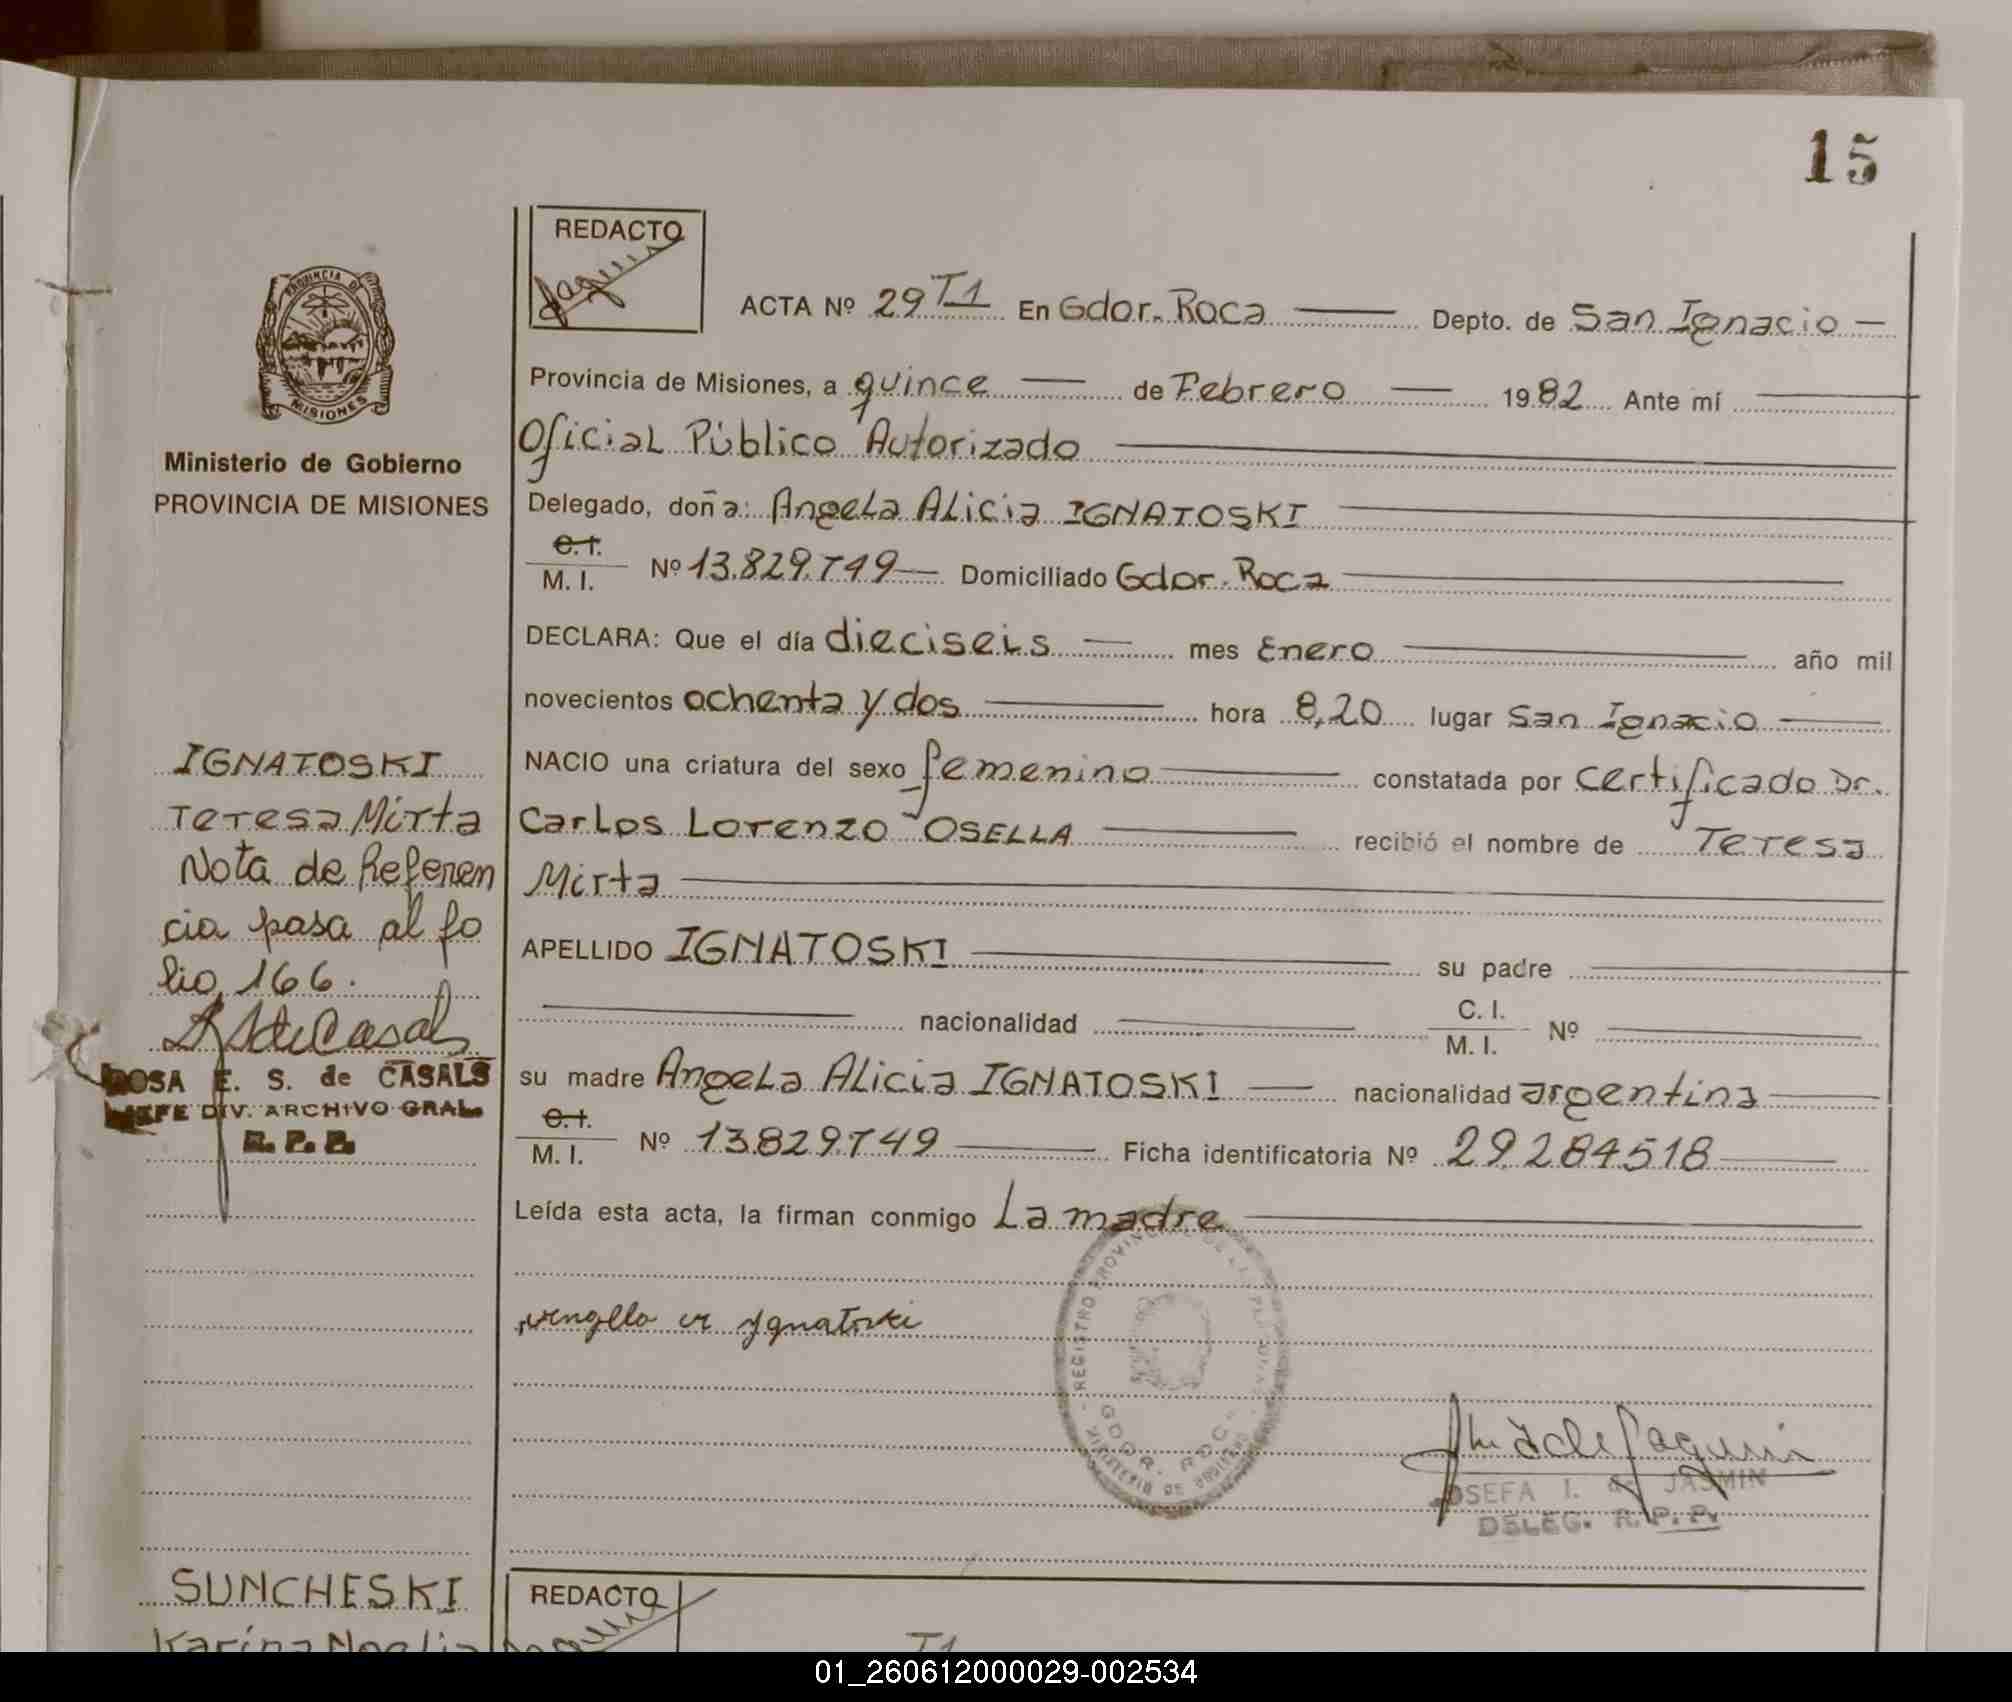 15
REDACTO
ACTA Nº 29 T1 En Gdor. Roca Depto. de San Ignacio
Provincia de Misiones, a quince de Febrero 1982 Ante mí
Oficial Público Autorizado
Delegado, doña: Angela Alicia IGNATOSKI
C. I.
M. I. Nº 13.829.749 Domiciliado Gdor. Roca
DECLARA: Que el día dieciseis mes Enero año mil
novecientos ochenta y dos hora 8,20 lugar San Ignacio
NACIO una criatura del sexo femenino constatada por certificado Dr.
Carlos Lorenzo OSELLA recibió el nombre de Teresa
Mirta
APELLIDO IGNATOSKI su padre
nacionalidad C. I. M. I. Nº
su madre Angela Alicia IGNATOSKI nacionalidad argentina
C. I.
M. I. Nº 13.829.749 Ficha identificatoria Nº 29.284518
Leída esta acta, la firman conmigo La madre
Ygnatoski
REGISTRO PROVINCIAL DE LAS PERSONAS
GDOR. ROCA
MINISTERIO DE GOBIERNO
JOSEFA I. de JASMIN
DELEG. R. P. P.
PROVINCIA DE
MISIONES
Ministerio de Gobierno
PROVINCIA DE MISIONES
IGNATOSKI
Teresa Mirta
Nota de Referen
cia pasa al fo
lio 166.
ROSA E. S. de CASALS
JEFE DIV. ARCHIVO GRAL.
R. P. P.
SUNCHESKI
Karina Noelia
REDACTO
T1
01_260612000029-002534